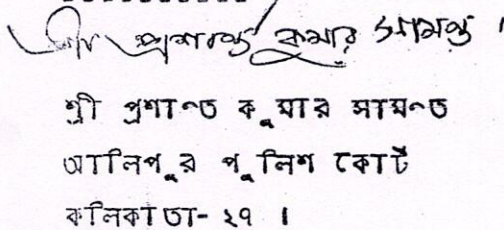 শ্রী প্রশান্ত কুমার সামন্ত ।
শ্রী প্রশান্ত কুমার সামন্ত
আলিপুর পুলিশ কোর্ট
কলিকাতা- ২৭ ।